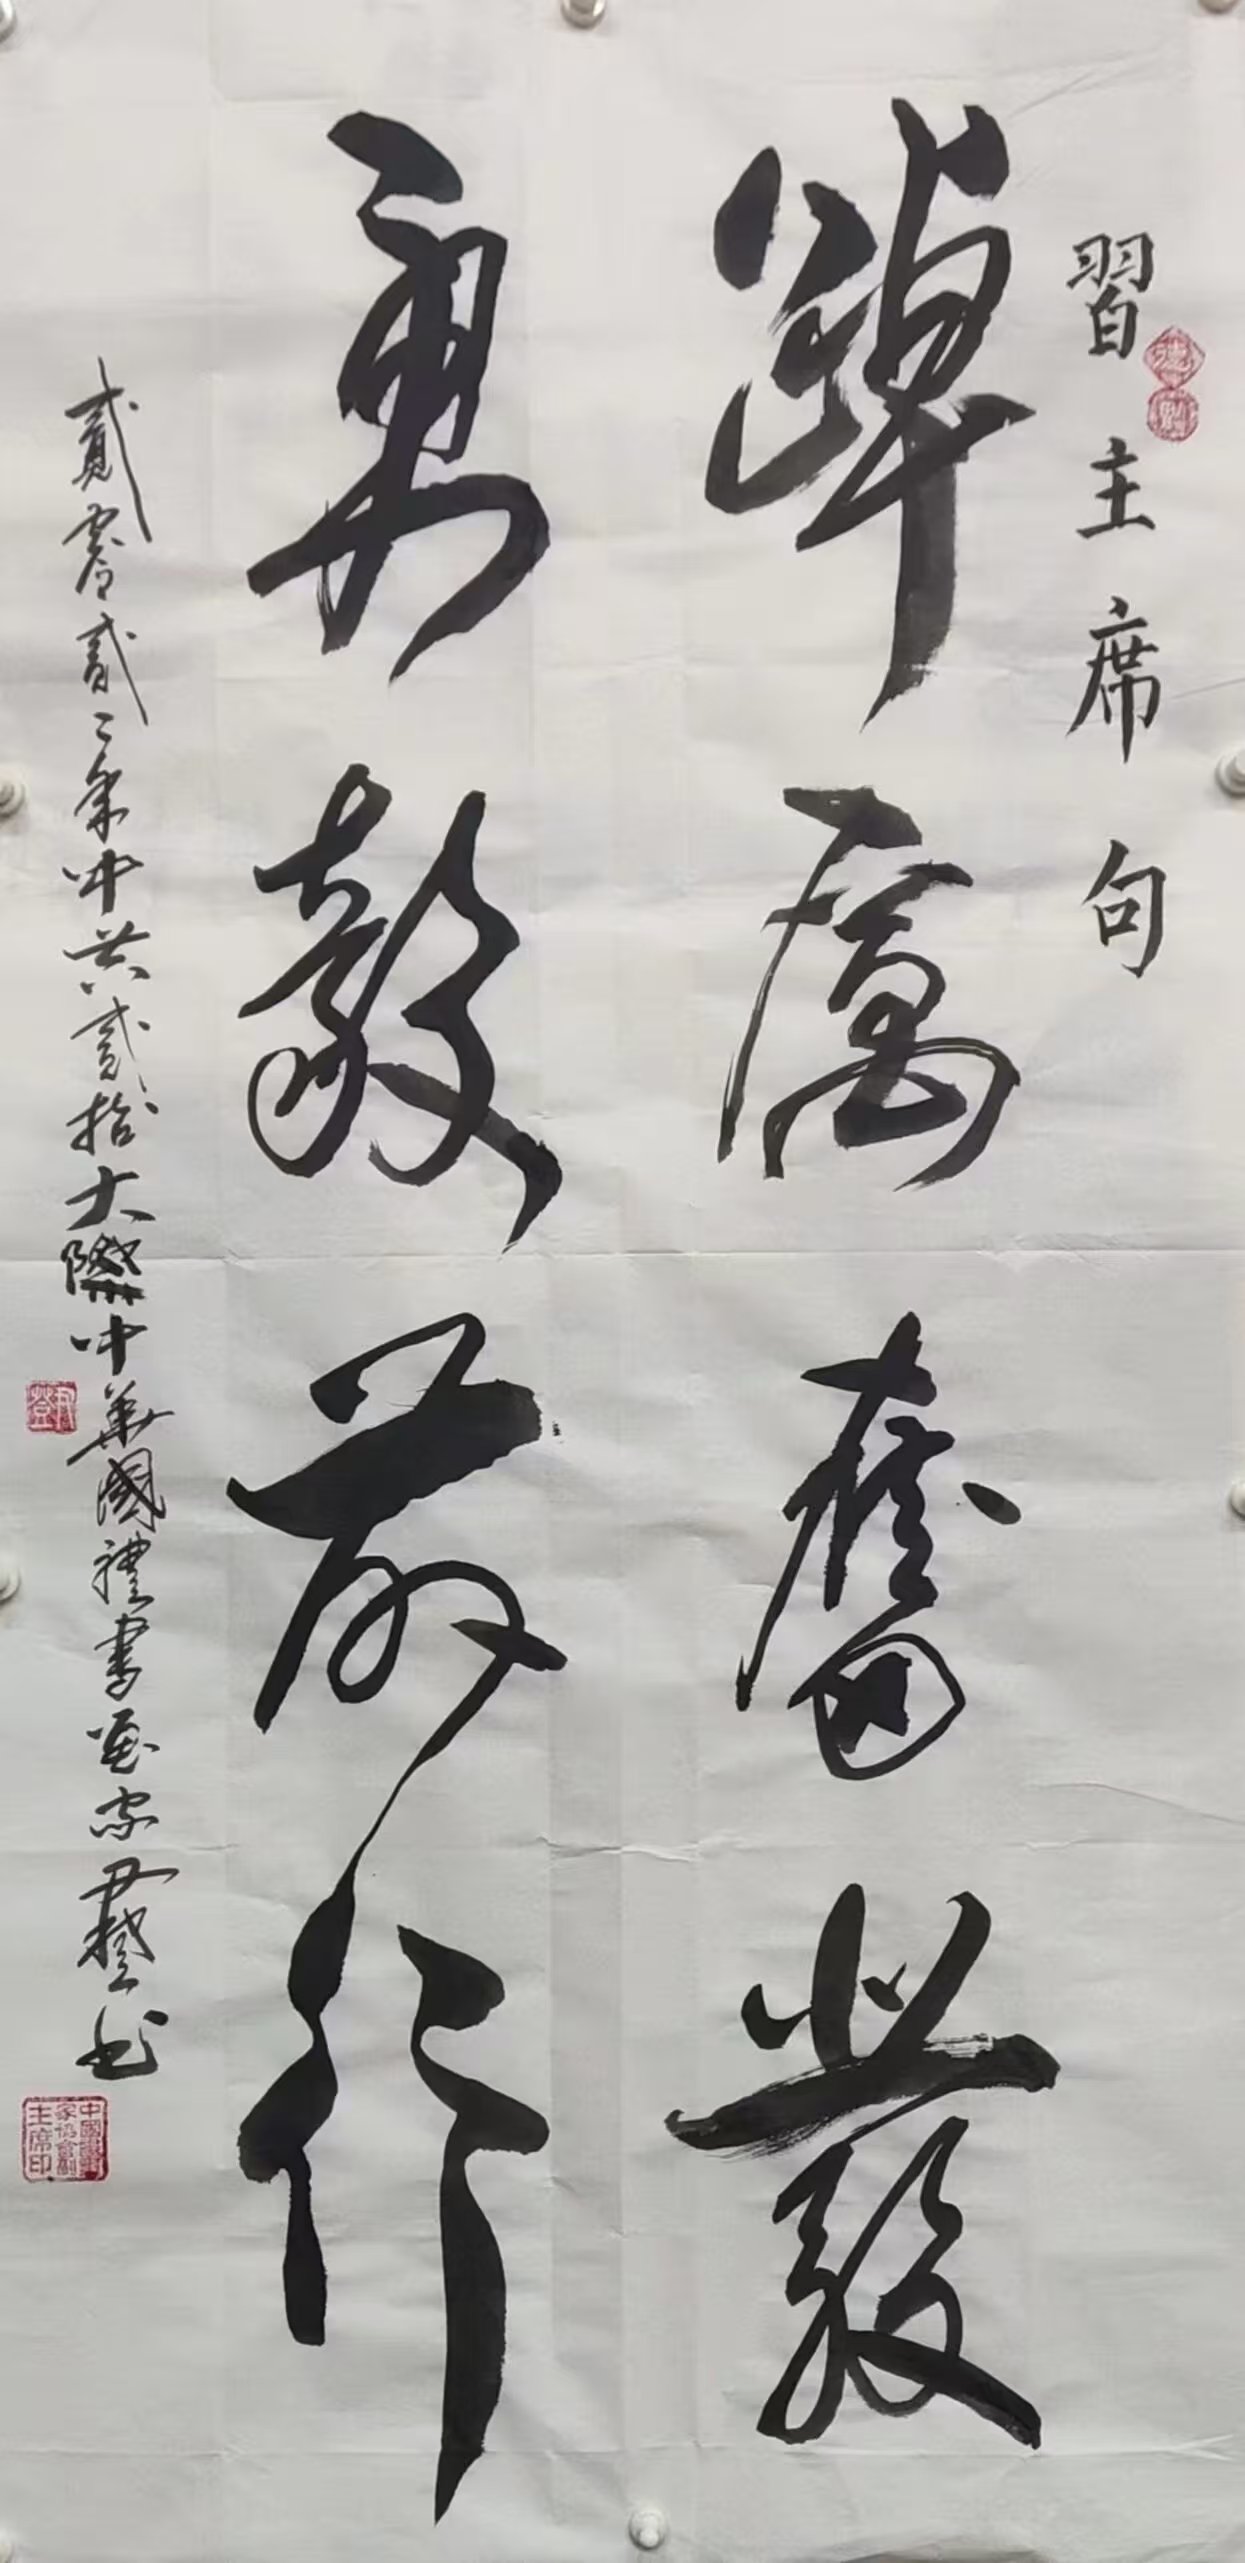 習主席句
踔厲奮發
勇毅前行
貳零貳二年中共貳拾大際中華國禮書畫家尹登书
尹登
中國書畫家協會副主席印